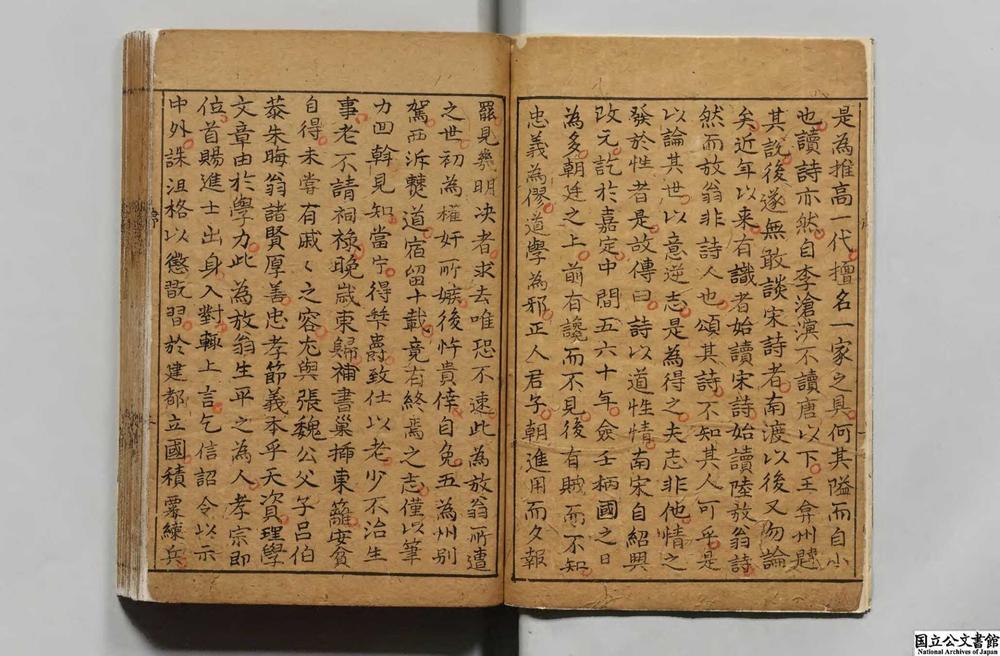 是為推高一代擅名一家之具何其隘而自小
也讀詩亦然自李滄溟不讀唐以下王弇州韙
其說後遂無敢談宋詩者南渡以後又勿論
矣近年以来有識者始讀宋詩始讀陸放翁詩
然而放翁非詩人也頌其詩不知其人可乎是
以論其世以意逆志是為得之夫志非他情之
發於性者是故傳曰詩以道性情南宋自紹興
改元訖於嘉定中間五六十年僉壬柄國之日
為多朝廷之上前有讒而不見後有賊而不知
忠義為僇道學為邪正人君子朝進用而夕報
罷見幾明决者求去唯恐不速此為放翁所遭
之世初為權奸所嫉後忤貴倖自免五為州别
駕西泝僰道宿留十載竟有終焉之志僅以筆
力回斡見知當宁得築爵致仕以老少不治生
事老不請祠祿晚歲東歸補書巢揷東籬安貧
自得未嘗有戚〻之容尤與張魏公父子呂伯
恭朱晦翁諸賢厚善忠孝節義本乎天資理學
文章由於學力此為放翁生平之為人孝宗即
位首賜進士出身入對輒上言乞信詔令以示
中外誅沮格以懲翫習於建都立國積粟練兵
国立公文書館
National Archives of Japan